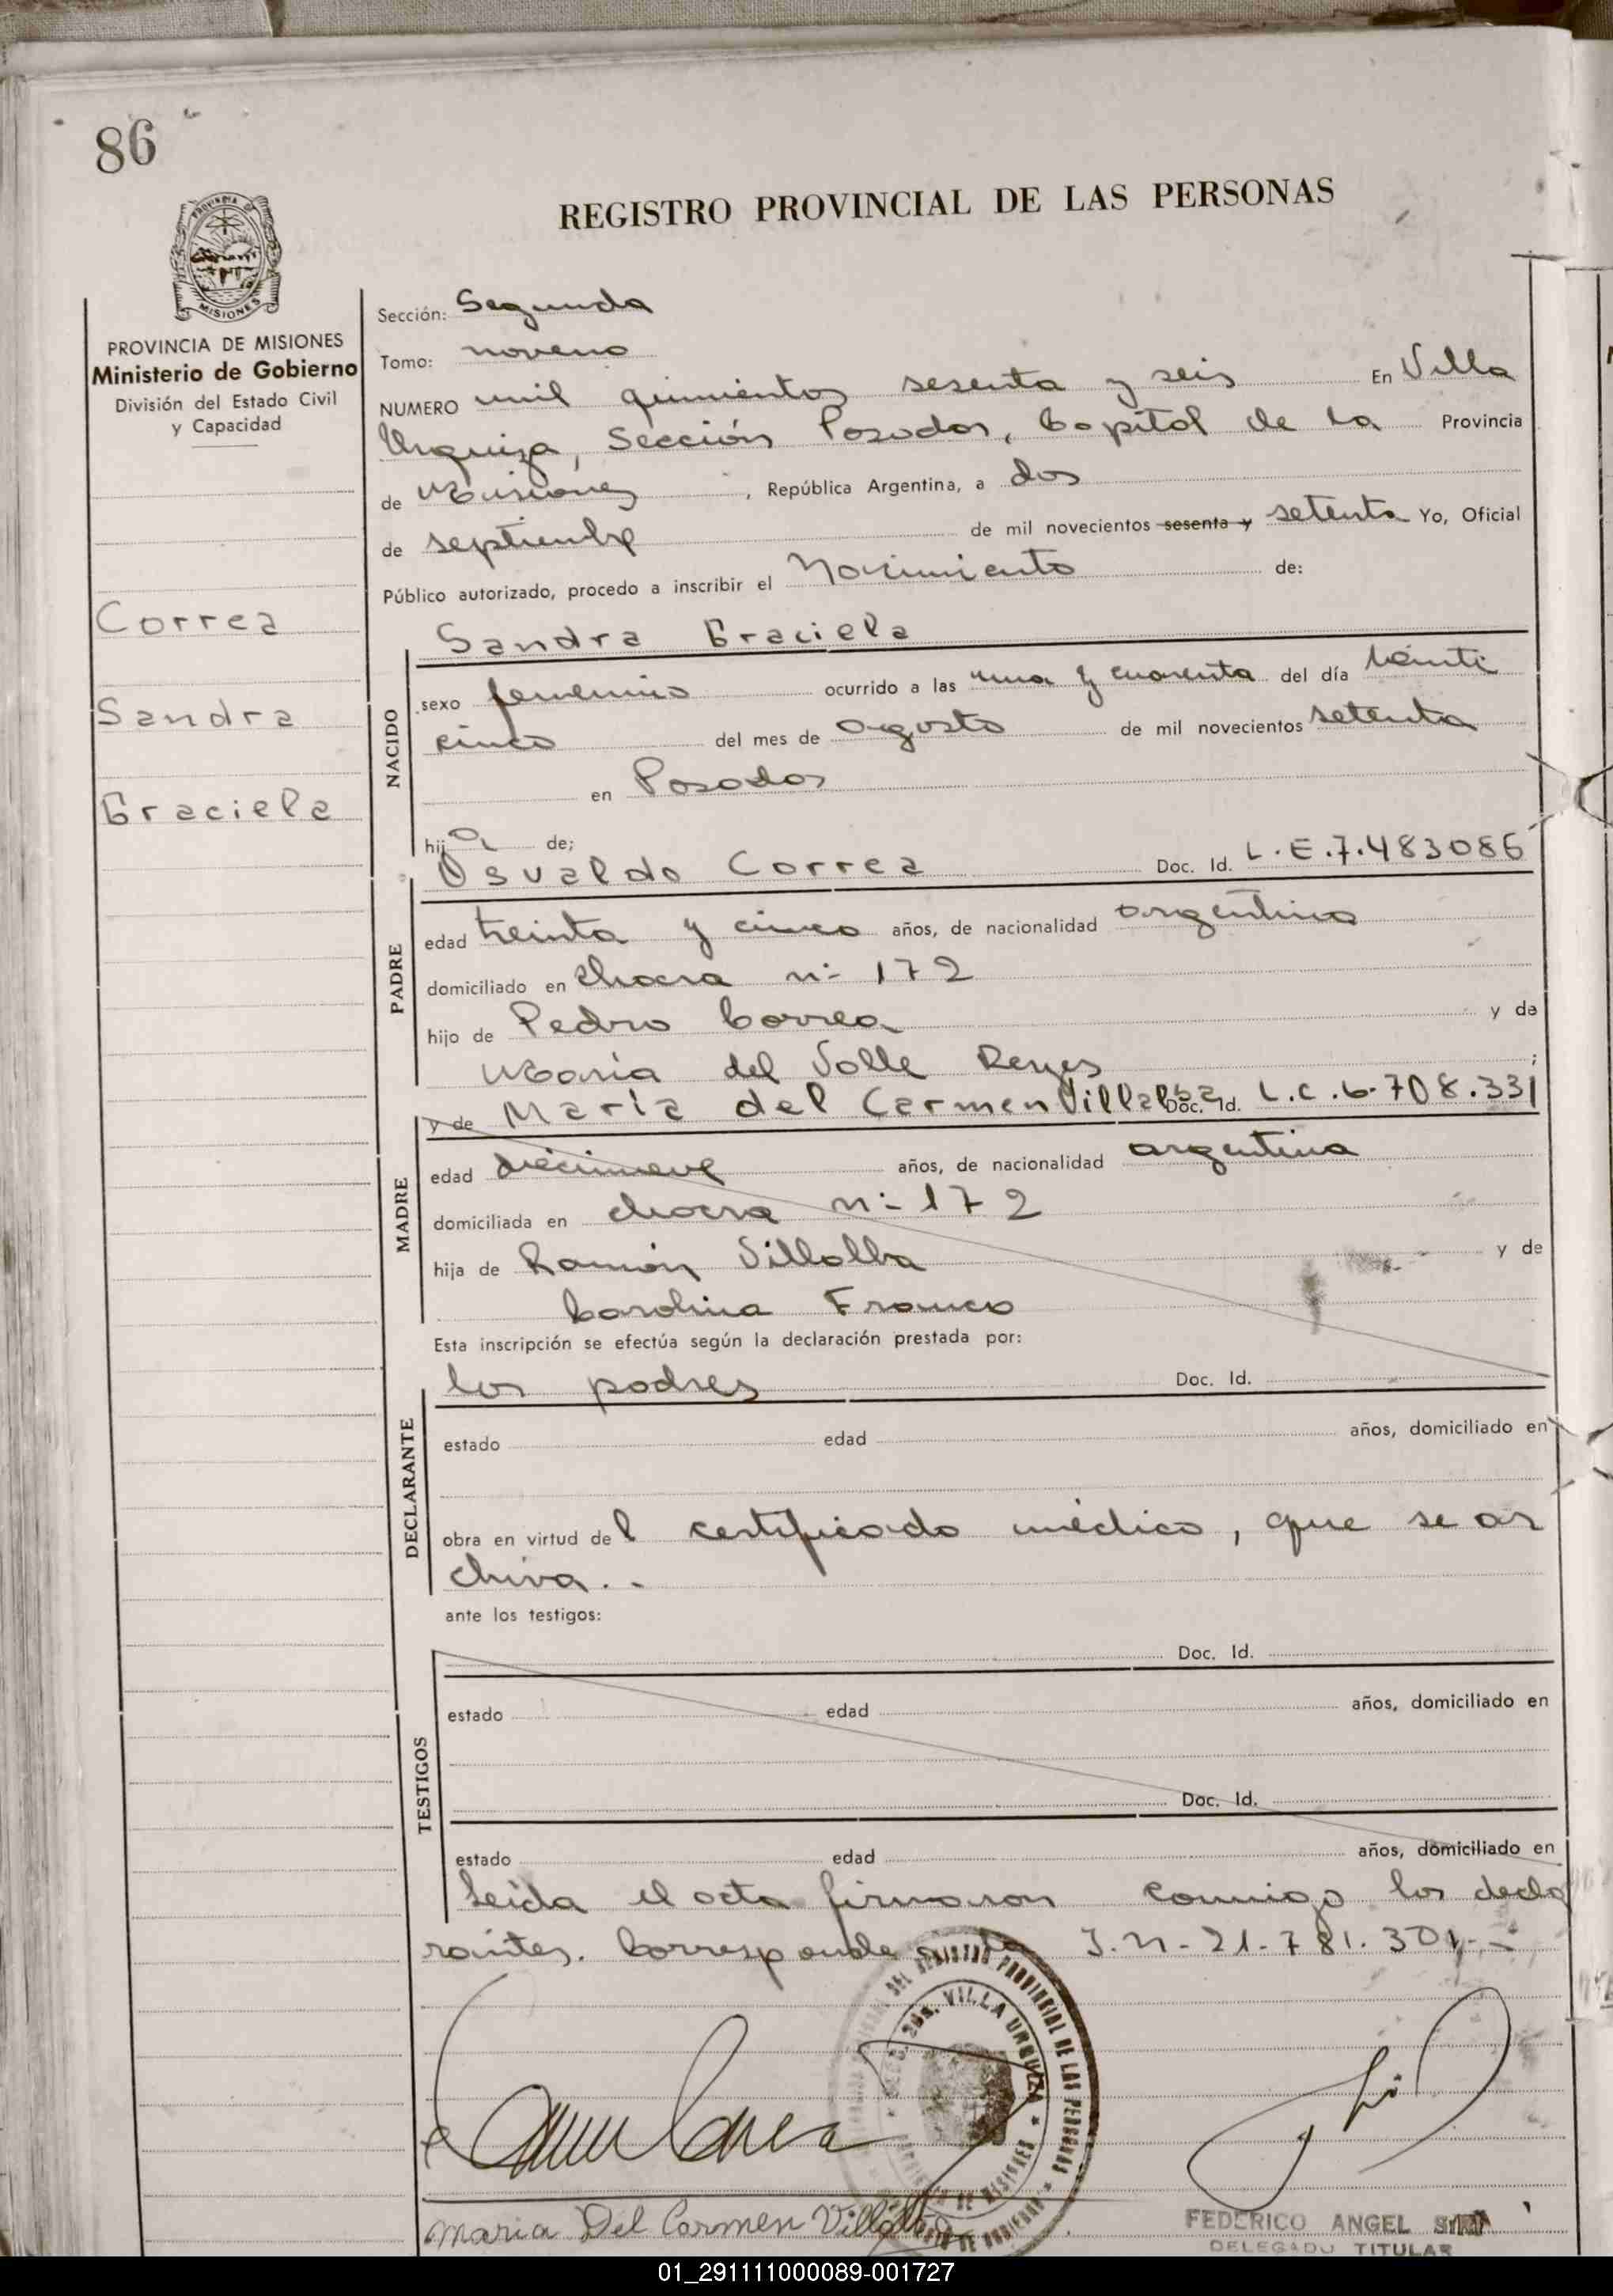 86
REGISTRO PROVINCIAL DE LAS PERSONAS
PROVINCIA DE MISIONES
Ministerio de Gobierno
División del Estado Civil
y Capacidad
Correa
Sandra
Graciela
Sección: Segunda
Tomo: noveno
NUMERO mil quinientos sesenta y seis En Villa
Urquiza, Sección Posadas, Capital de la Provincia
de Misiones, República Argentina, a dos
de septiembre de mil novecientos sesenta y setenta Yo, Oficial
Público autorizado, procedo a inscribir el Nacimiento de:
Sandra Graciela
NACIDO
sexo femenino ocurrido a las una y cuarenta del día veinti
cinco del mes de agosto de mil novecientos setenta
en Posadas
hija de;
Osvaldo Correa Doc. Id. L.E.7.483086
PADRE
edad treinta y cinco años, de nacionalidad argentino
domiciliado en chacra n:- 172
hijo de Pedro Correa y de
María del Valle Reyes ;
y de María del Carmen Villalba Doc. Id. L.C.6.708.331
MADRE
edad diecinueve años, de nacionalidad argentina
domiciliada en chacra n:- 172
hija de Ramón Villalba y de
Carolina Franco
Esta inscripción se efectúa según la declaración prestada por:
los padres Doc. Id.
DECLARANTE
estado edad años, domiciliado en
obra en virtud del certificado médico, que se ar
chiva..
ante los testigos:
Doc. Id.
TESTIGOS
estado edad años, domiciliado en
Doc. Id.
estado edad años, domiciliado en
Leída el acta firmaron conmigo los decla
rantes. Corresponde la I.N-21.781.301.-
DEL REGISTRO PROVINCIAL DE LAS PERSONAS
VILLA URQUIZA
Maria Del Carmen Villalba
FEDERICO ANGEL
DELEGADO TITULAR
01_291111000089-001727